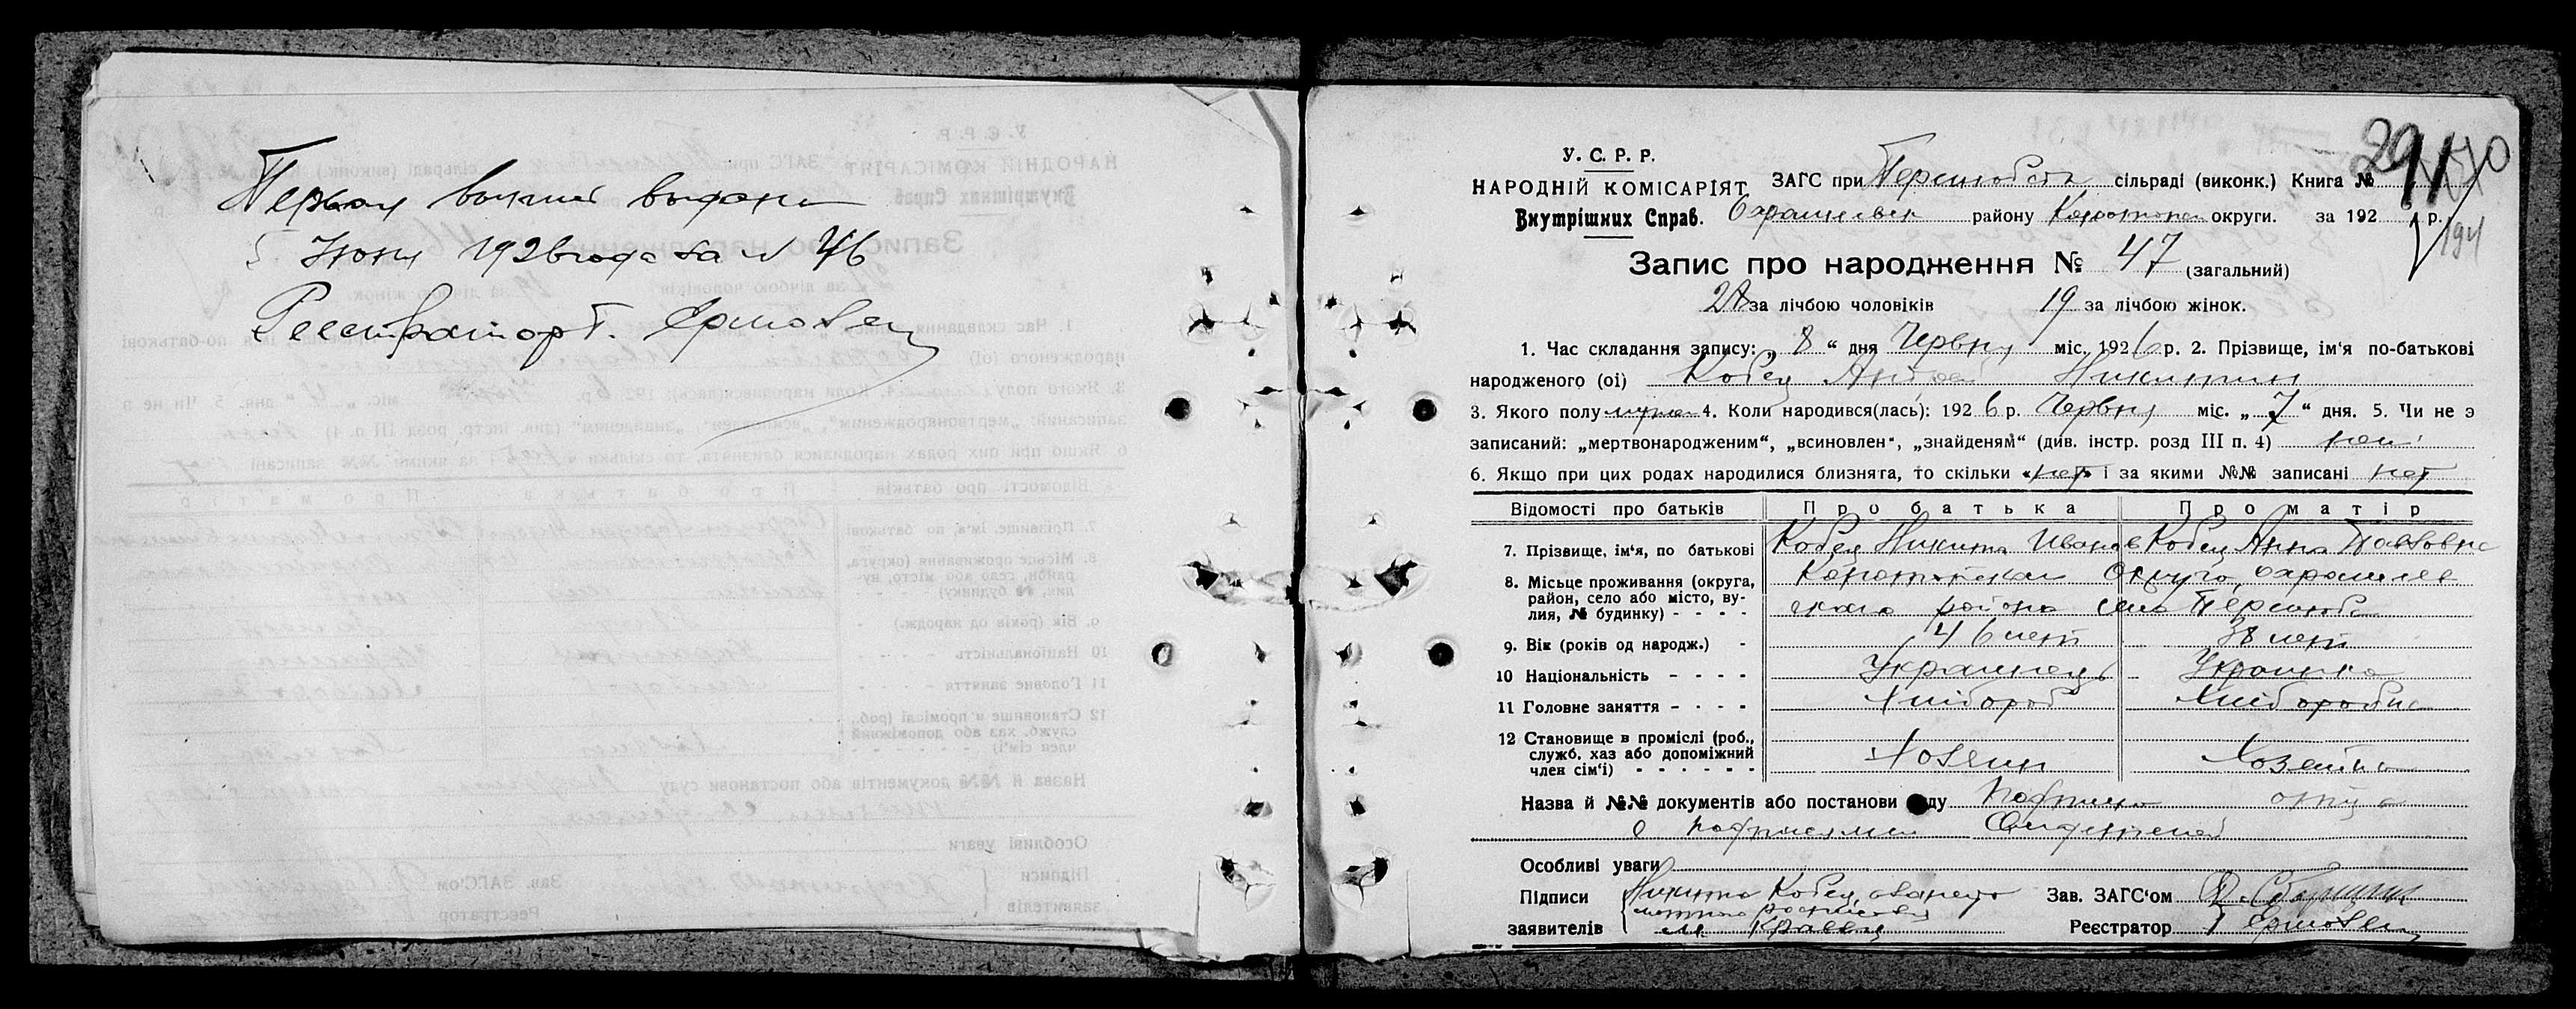 Первая выпись выдана
5 Июня 1926 года за № 46
Регистратор Т. Ермовец
У. С. Р. Р.
НАРОДНІЙ КОМІСАРІЯТ
Внутрішних Справ.
ЗАГС при сільраді (виконк.) Книга №
району округи. за 192 р.
Запис про народження № 47 (загальний)
28 за лічбою чоловіків 19 за лічбою жінок.
1. Час складання запису: „ 8 “ дня Червня міс. 1926 р. 2. Прізвище, ім'я по-батькові
народженого (ої) Кобец Андрей Никитин
3. Якого полу мужск 4. Коли народився(лась): 1926 р. Червня міс. „ 7 “ дня. 5. Чи не є
записаний: „мертвонародженим“, „всиновлен“, „знайденям“ (див. інстр. розд III п. 4) нет
6. Якщо при цих родах народилися близнята, то скільки «нет» і за якими №№ записані нет
Відомості про батьків Про батька Про матір
7. Прізвище, ім'я, по батькові Кобец Никита Иванов Кобец Анна Павловна
8. Місьце проживання (округа, район, село або місто, ву-лия, № будинку) Округа,
района село
9. Вік (років од народж.) 46 лет 38 лет
10 Національність Украинець Украинка
11 Головне заняття Хлібороб Хлиборобка
12 Становище в проміслі (роб., служб. хаз або допоміжний член сім'ї) Хозяин Хозяйка
Назва й №№ документів або постанови суду отца
о
Особливі уваги
Підписи Никита Кобец, а за него Зав. ЗАГС'ом
неграмотного расписался
заявителів М. Кравец Реєстратор Т Ермовец